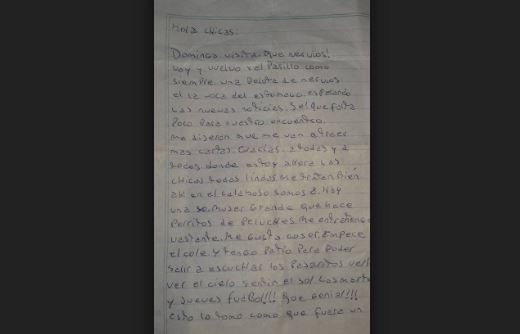 Hola chicas:
Domingo visita que nervios!
voy y vuelvo x el Pasillo como
siempre una Pelota de nervios
el la voca del estomago. esperando
las nuevas noticias. Se que falta
Poco Para nuestro encuentro.
me dijeron que me van a traer
mas cartas. Gracias a todas y a
todos. donde estoy ahora las
chicas todas lindas me tratan Bien
en el calaboso somos 2. Hay
una Grande que hace
Perritos de Peluches me entretengo
vastante. Me Gusta coser. Empece
el cole. y tengo Patio Para Poder
salir a escuchar los Pajaritos
ver el cielo sentir el sol. Los mart
y Jueves futbol!!! Que genial!!!
esto lo tomo como que fuera un